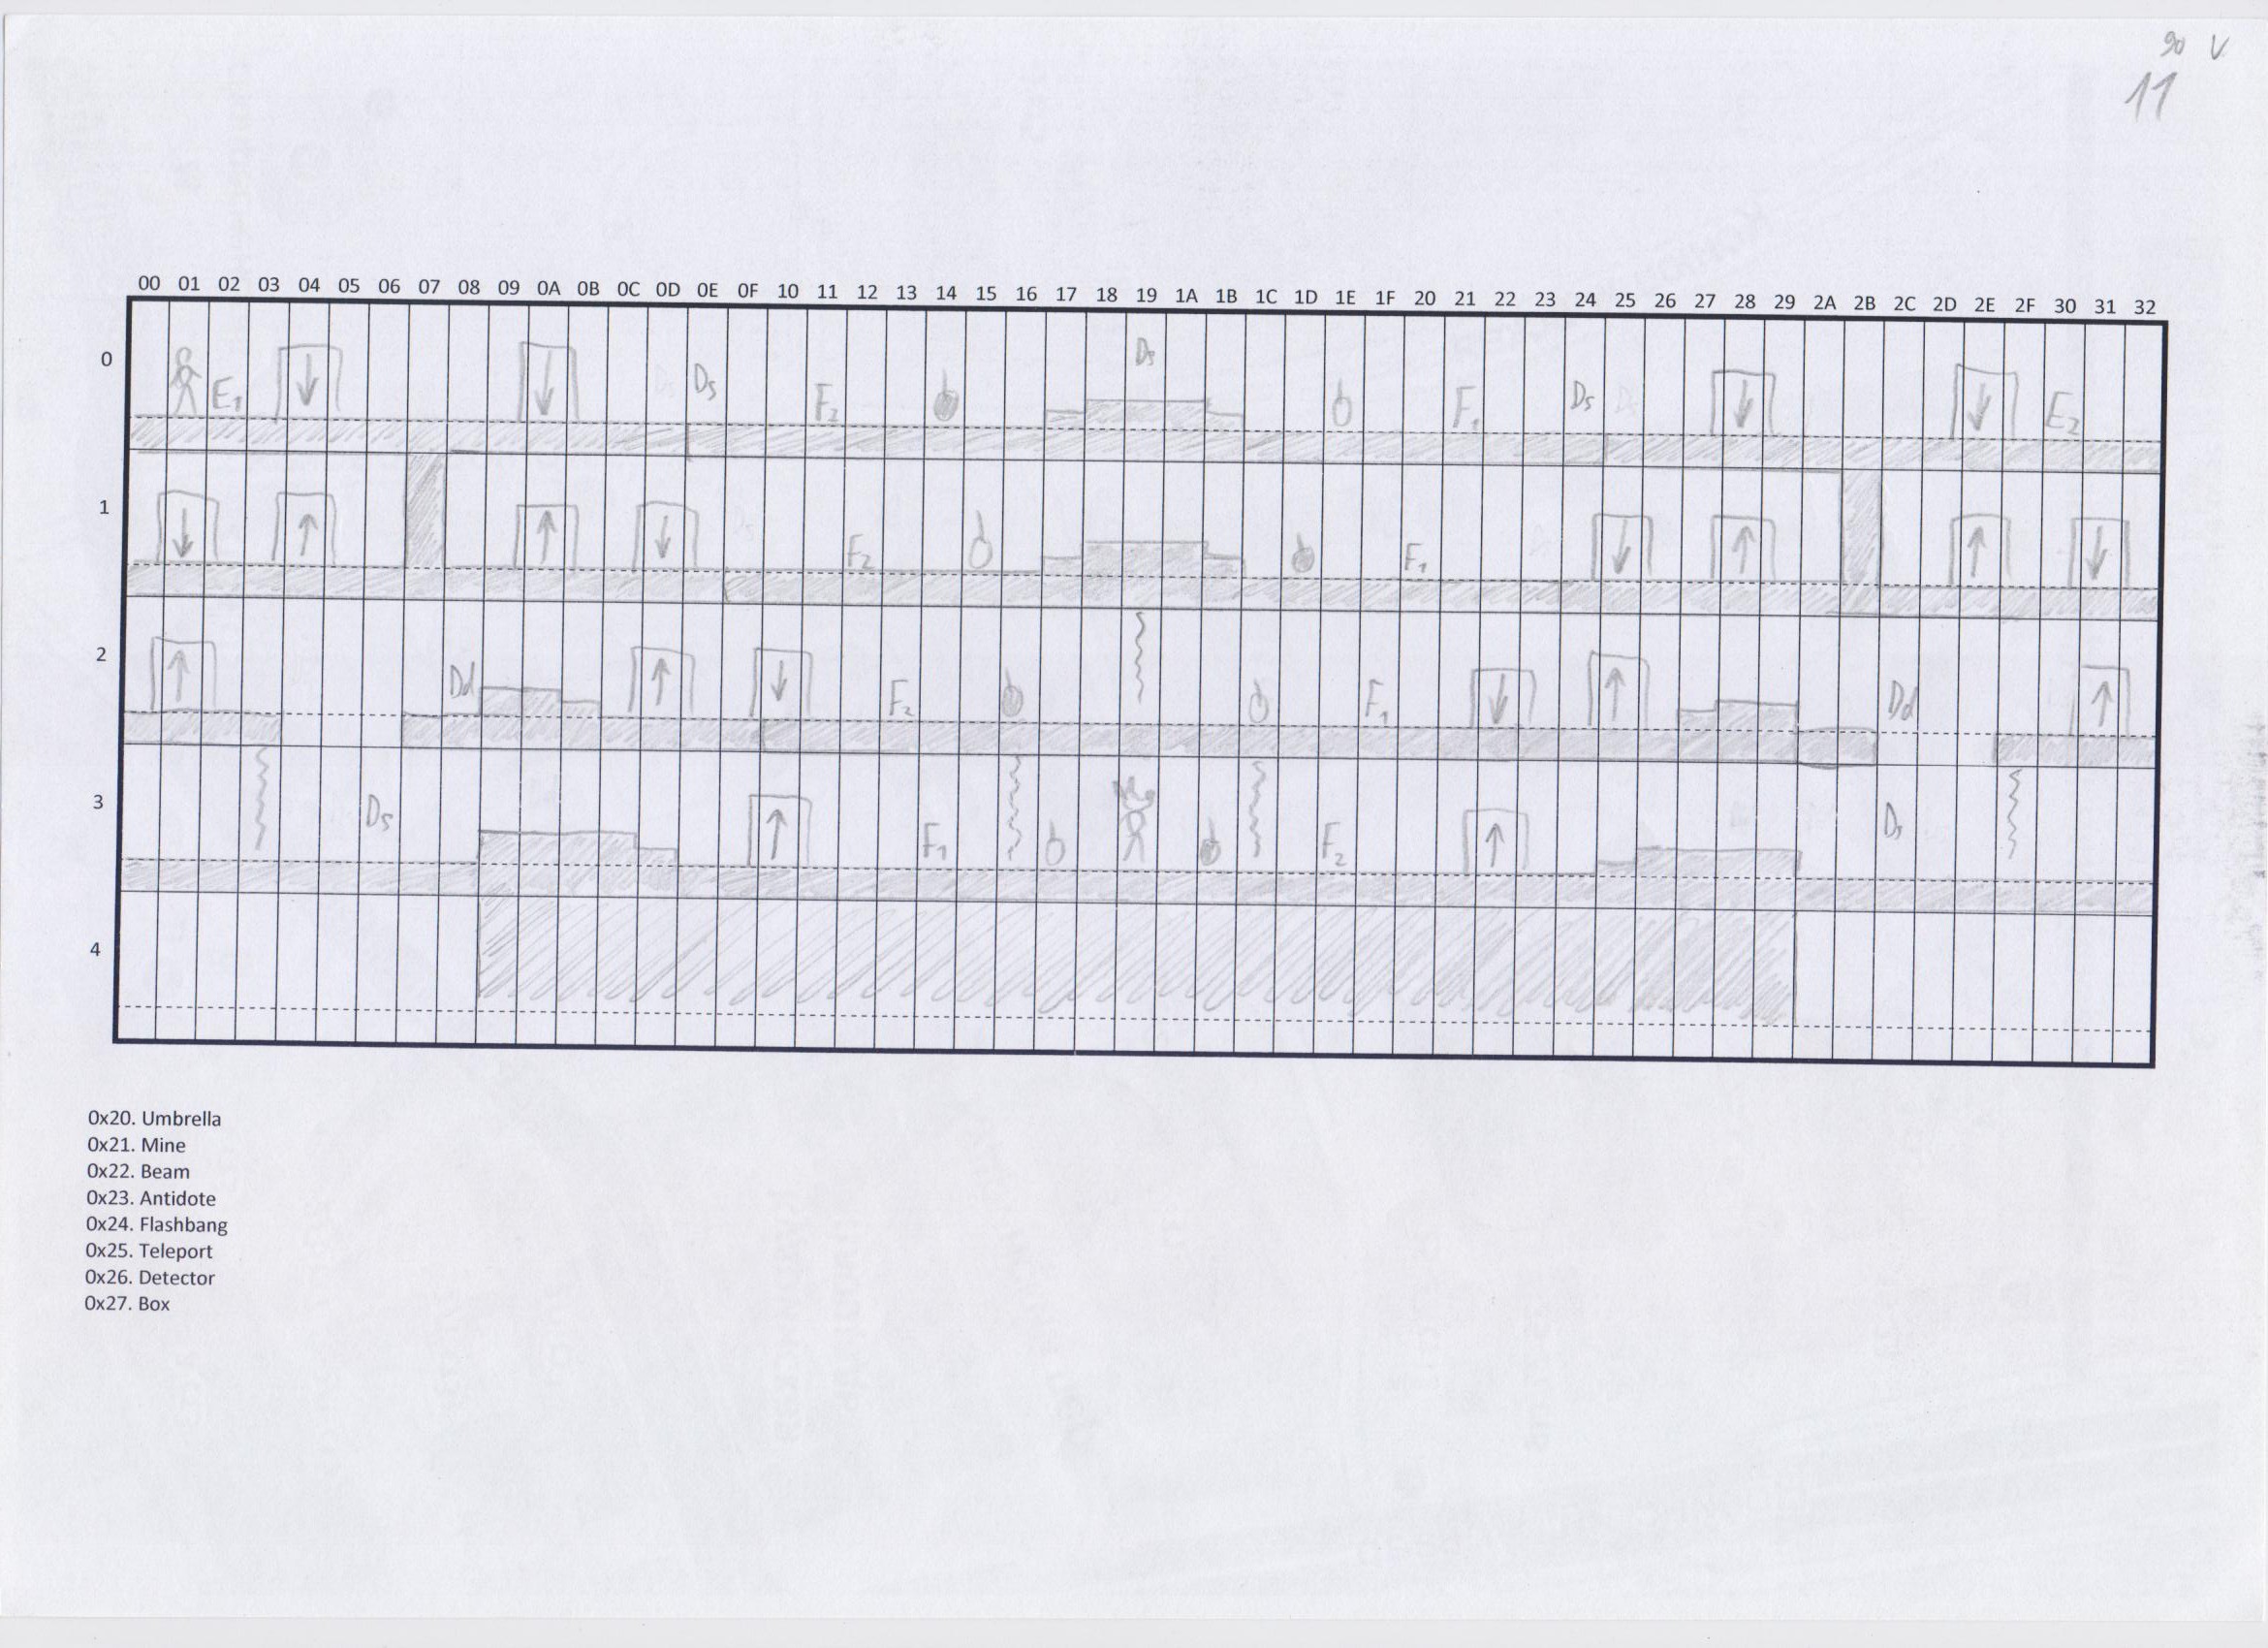 90 V
11
00 01 02 03 04 05 06 07 08 09 0A 0B 0C 0D 0E 0F 10 11 12 13 14 15 16 17 18 19 1A 1B 1C 1D 1E 1F 20 21 22 23 24 25 26 27 28 29 2A 2B 2C 2D 2E 2F 30 31 32
0 E1 Ds F2 Ds F1 Ds E2
1 F2 F1
2 Dd F2 F1 Dd
3 Ds F1 F2 Ds
4
0x20. Umbrella
0x21. Mine
0x22. Beam
0x23. Antidote
0x24. Flashbang
0x25. Teleport
0x26. Detector
0x27. Box